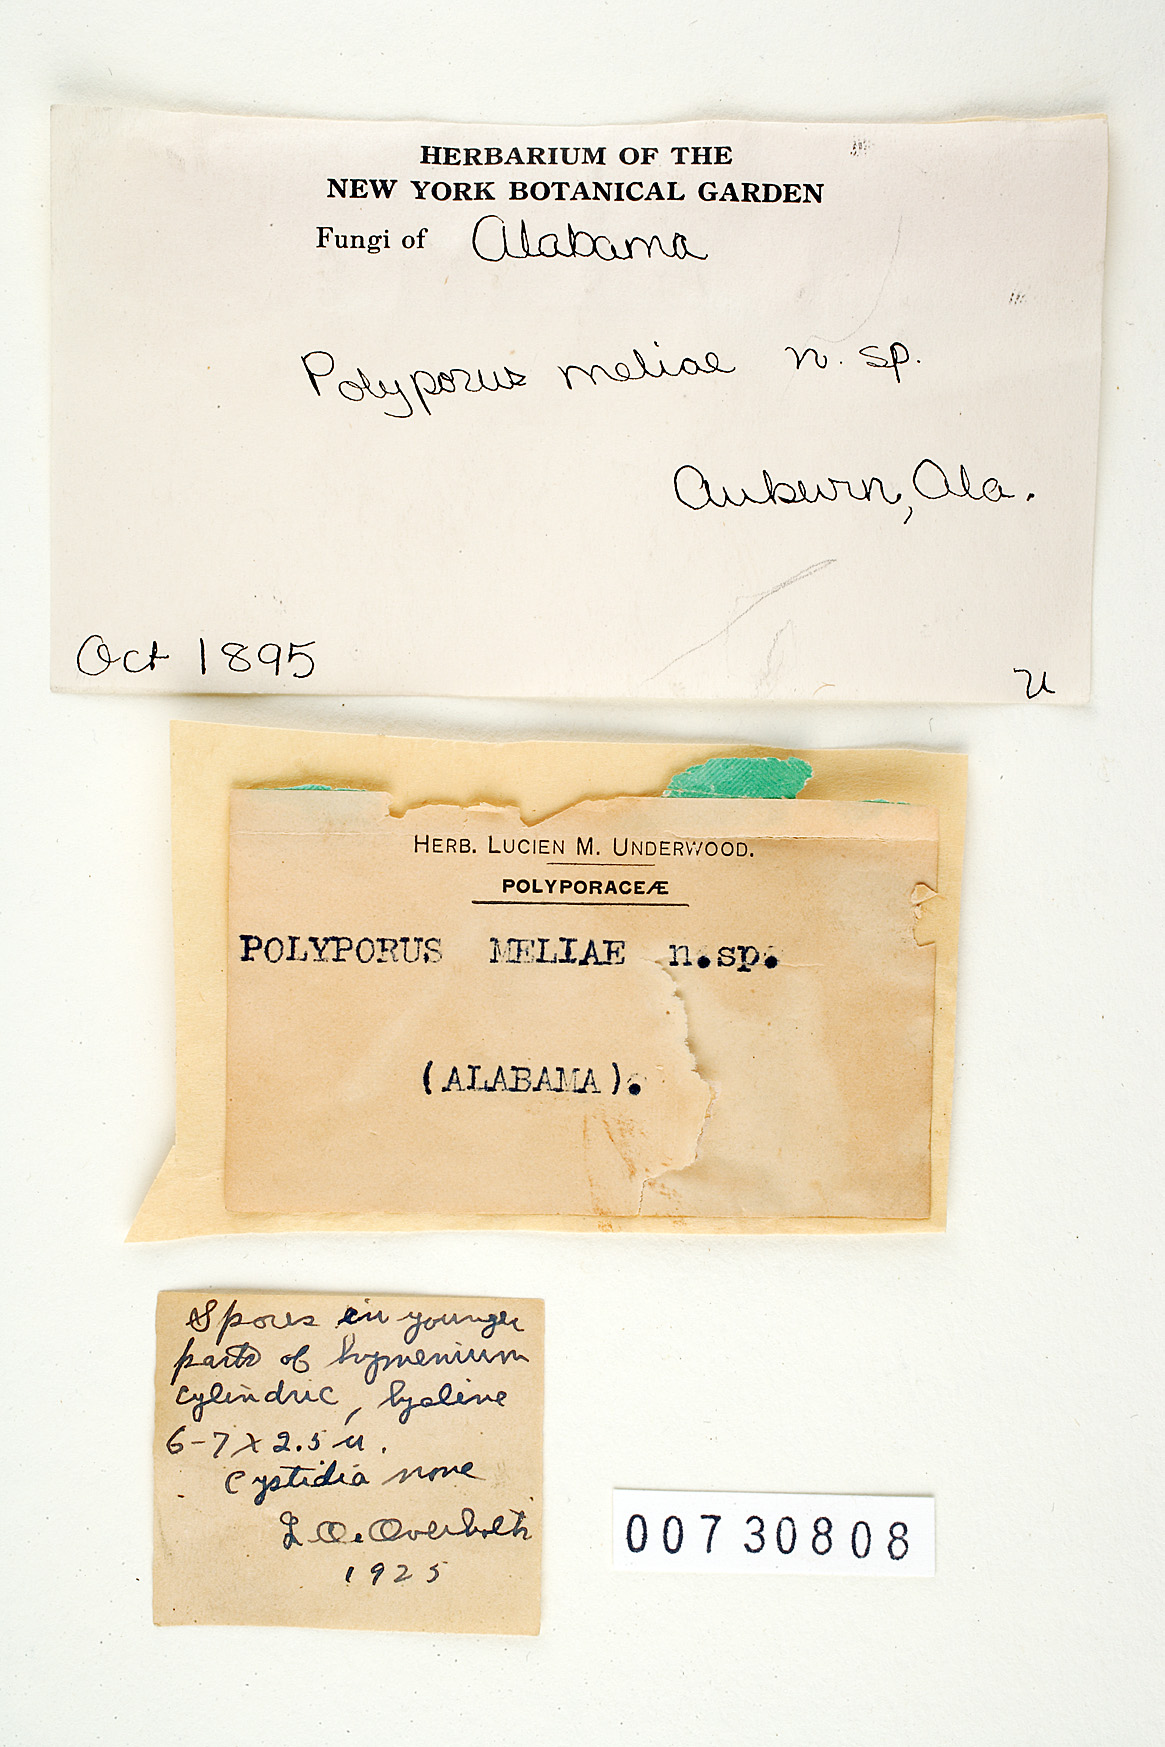 HERBARIUM OF THE
NEW YORK BOTANICAL GARDEN
Fungi of Alabama
Polyporus meliae n. sp.
Auburn, Ala.
Oct 1895
u
HERB. LUCIEN M. UNDERWOOD.
POLYPORACEÆ
POLYPORUS MELIAE n.sp.
(ALABAMA).
Spores in younger
parts of hymenium
cylindric, hyaline
6-7 x 2.5 u.
Cystidia none
L. O. Overholts
1925
00730808